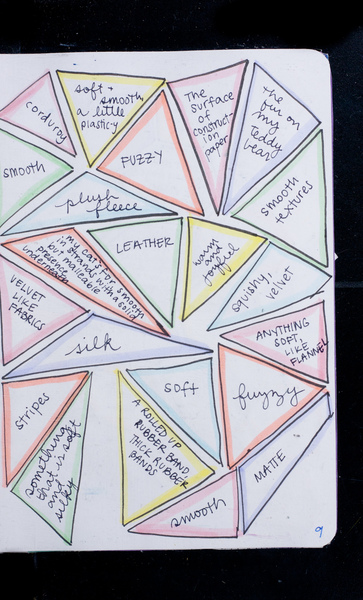 corduroy
soft +
smooth
a little
plasticy
The
surface
of
construct-
ion
paper
the
fur on
my
teddy
bear
FUZZY
smooth
smooth
textures
plush
fleece
LEATHER
warm
joyful
my cat's fur smooth
in strands with a solid
but malleable
presence
underneath
squishy,
velvet
VELVET
LIKE
FABRICS
ANYTHING
SOFT,
LIKE
FLANNEL
silk
SOFT
fuzzy
stripes
A ROLLED UP
RUBBER BAND
THICK RUBBER
BANDS
something
that is soft
and
silky
MATTE
smooth
9